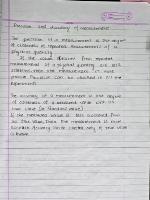 Precision and Accuracy of measurement
The precision of a measurement is the degree
of closeness of repeated measurements of a
physical quantity
If the values obtained from repeated
measurements of a physical quantity are still
the measurement is more
precise. Precision can be checked in
experiment.
The accuracy of a measurement is the degree
of closeness of a measured value with its
true value (or standard value)
If the measured value is
to the true value, then the measurement is more
accurate. Accuracy can be checked only if true value
is known.